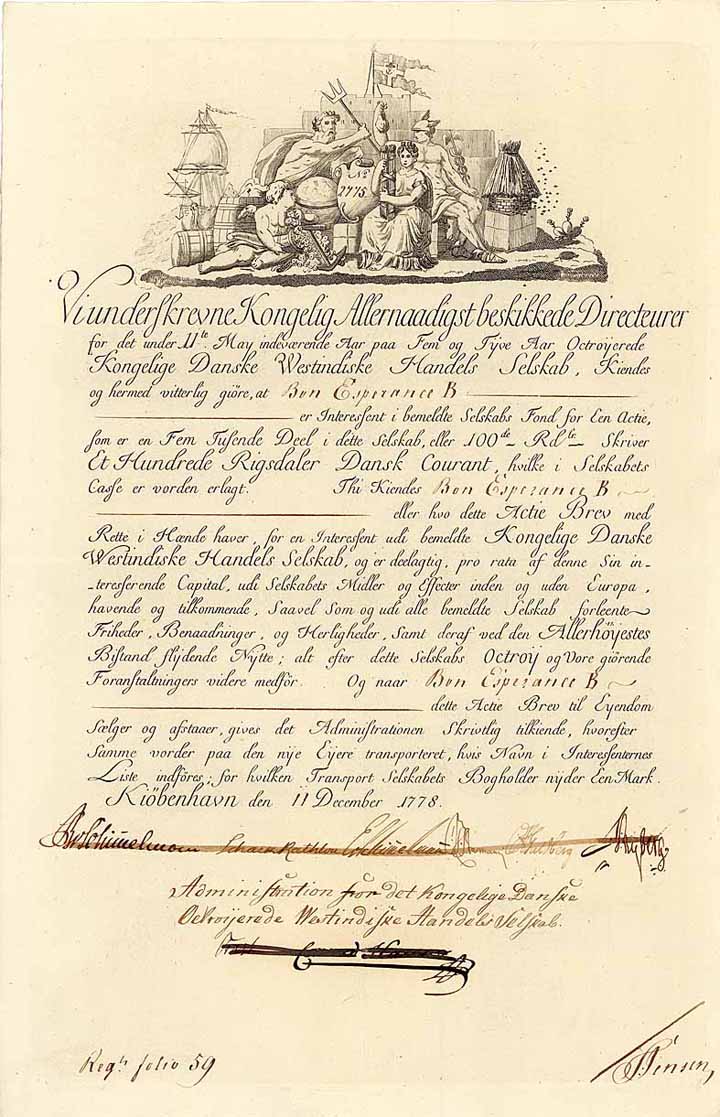 No
2775.
Vi underskrevne Kongelig Allernaadigst beskikkede Directeurer
for det under 11te May indeværende Aar paa Fem og Tyve Aar Octroyerede
Kongelige Danske Westindiske Handels Selskab, Kiendes
og hermed vitterlig giöre, at Bon Esperance B
er Interessent i bemeldte Selskabs Fond for Een Actie,
som er en Fem Tusende Deel i dette Selskab, eller 100de Rdle Skriver
Et Hundrede Rigsdaler Dansk Courant, hvilke i Selskabets
Casse er vorden erlagt. Thi Kiendes Bon Esperance B
eller hvo dette Actie Brev med
Rette i Hænde haver, for en Interessent udi bemeldte Kongelige Danske
Westindiske Handels Selskab, og er deelagtig, pro rata af denne Sin in-
-teresserende Capital, udi Selskabets Midler og Effecter inden og uden Europa,
havende og tilkommende, Saavel Som og udi alle bemeldte Selskab forleente
Friheder, Benaadninger, og Herligheder, Samt deraf ved den Allerhöyestes
Bistand flydende Nytte; alt efter dette Selskabs Octroy og Vore giörende
Foranstaltningers videre medför. Og naar Bon Esperance B
dette Actie Brev til Eyendom
Sælger og afstaaer, gives det Administrationen Skrivtlig tilkiende, hvorefter
Samme vorder paa den nye Eyere transporteret, hvis Navn i Interessenternes
Liste indföres; for hvilken Transport Selskabets Bogholder nyder Een Mark.
Kiöbenhavn den 11 December 1778.
Schimmelmann Schack Rathlou Schimmelmann Ryberg
Administration for det Kongelige Danske
Octroijerede Westindiske Handels Selskab.
Regt folio 59
Jensen,